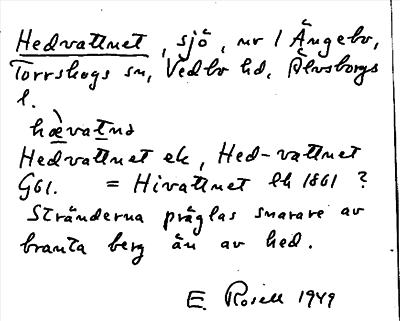 Hedvattnet, sjö, nv / Ängebo,
Torrskogs sn, Vedbo hd, Älvsborgs
l.
hævatnə
Hedvattnet ek, Hed-vattnet
G61. = Hivattnet lk 1861 ?
Stränderna präglas snarare av
branta berg än av hed.
E. Rosell 1949